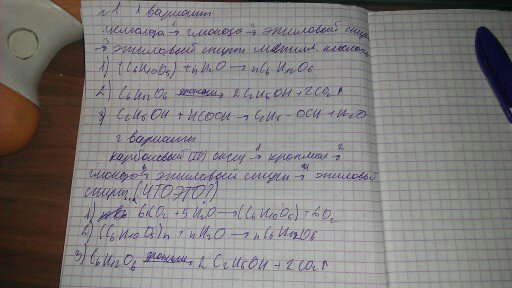 №1 1 вариант
целлюлоза 1→ глюкоза 2→ этиловый спирт
3→ этиловый спирт кислоты
1) (C6H10O6) + nH2O → nC6H12O6
2) C6H12O6 дрожжи→ 2C2H5OH + 2CO2↑
3) C2H5OH + HCOOH → + H2O
2 вариант
карбоновый (IV) оксид 1→ крахмал 2→
глюкоза 3→ этиловый спирт 4→ этиловый
спирт (ЧТО ЭТО?)
1) 6CO2 + 5H2O → (C6H10O5) + 6O2
2) (C6H10O5)n + nH2O → nC6H12O6
3) C6H12O6 дрожжи→ 2C2H5OH + 2CO2↑